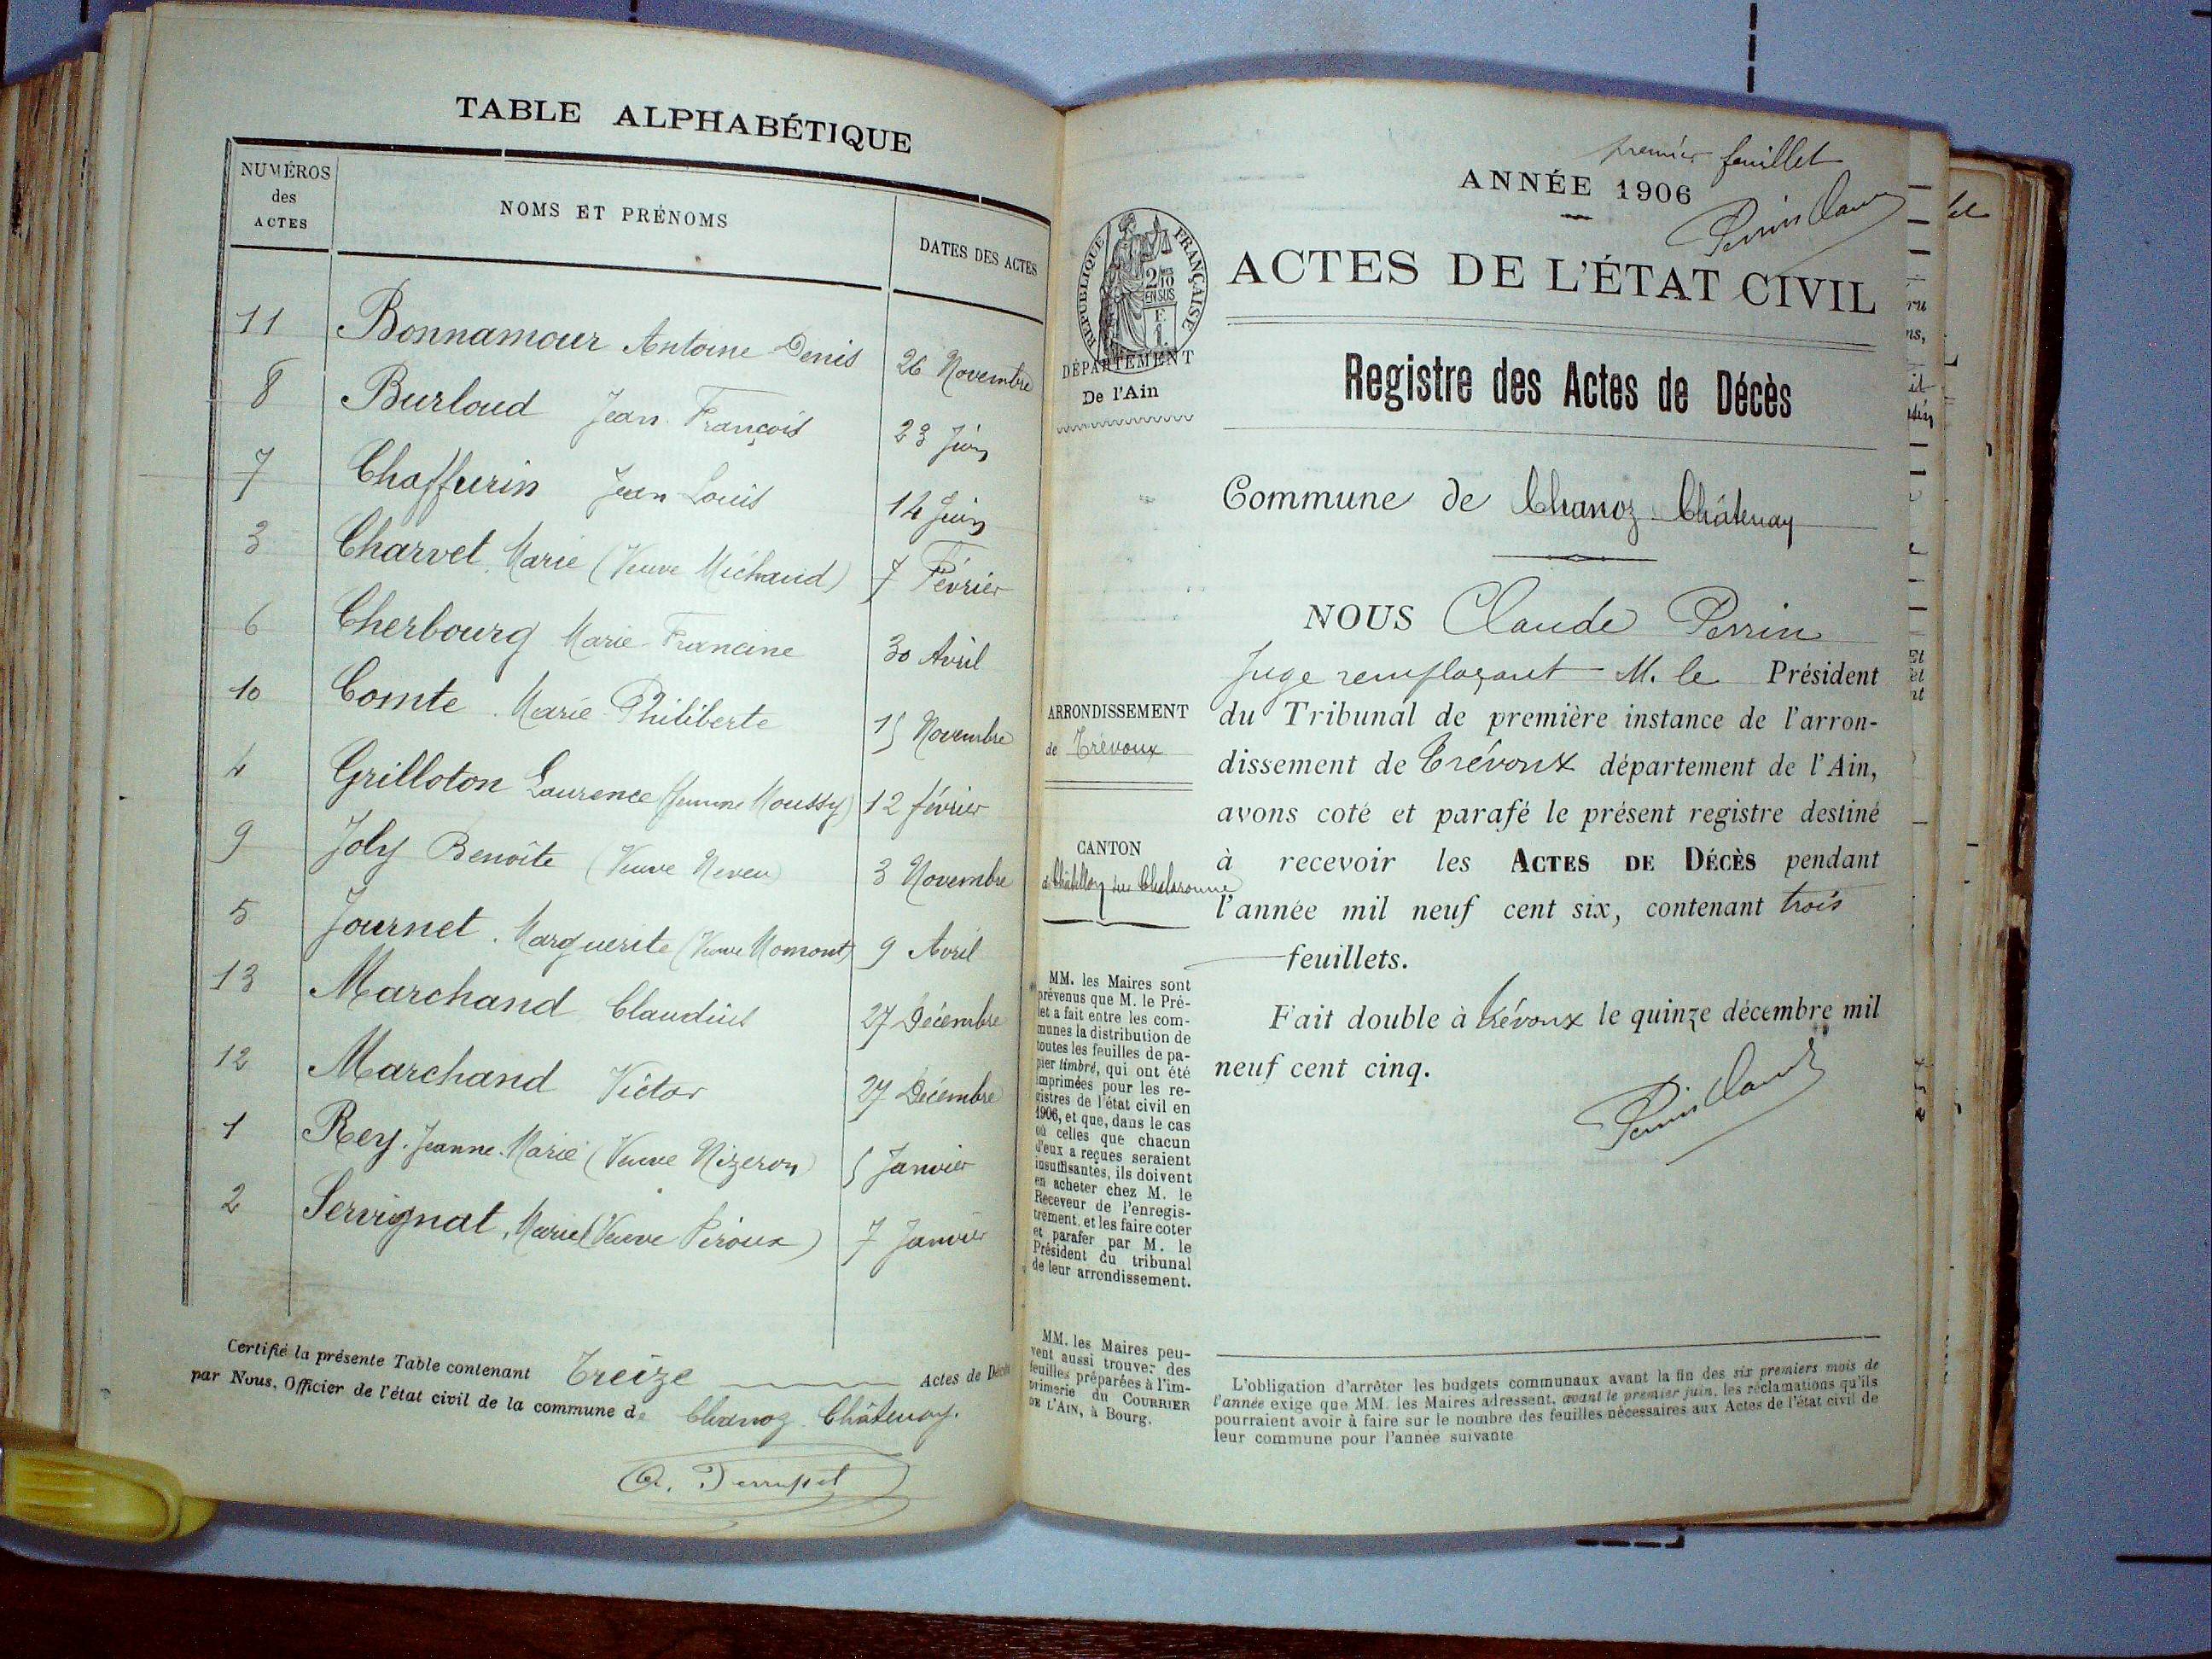 TABLE ALPHABÉTIQUE
NUMÉROS des ACTES
NOMS ET PRÉNOMS
DATES DES ACTES
11 Bonnamour Antoine Denis 26 Novembre
8 Burloud Jean François 23 Juin
7 Chaffurin Jean Louis 14 Juin
3 Charvet Marie (Veuve Michaud) 7 Février
6 Cherbourg Marie Francine 30 Avril
10 Comte Marie Philiberte 15 Novembre
4 Grilloton Laurence (femme Moussy) 12 février
9 Joly Benoîte (Veuve Neveu) 3 Novembre
5 Journet Marguerite (Veuve Momont) 9 Avril
13 Marchand Claudius 27 Décembre
12 Marchand Victor 27 Décembre
1 Rey Jeanne Marie (Veuve Nizeron) 5 Janvier
2 Servignat, Marie (Veuve Piroux) 7 Janvier
Certifié la présente Table contenant Treize Actes de Décès
par Nous, Officier de l'état civil de la commune de Chanoz Châtenay.
premier feuillet
ANNÉE 1906
Perrin Claude
RÉPUBLIQUE FRANÇAISE
2/10
EN SUS
F.
1.
DÉPARTEMENT
De l'Ain
ACTES DE L'ÉTAT CIVIL
Registre des Actes de Décès
Commune de Chanoz Châtenay
NOUS Claude Perrin
Juge remplaçant M. le Président
du Tribunal de première instance de l'arron-
dissement de Trévoux département de l'Ain,
avons coté et parafé le présent registre destiné
à recevoir les ACTES DE DÉCÈS pendant
l'année mil neuf cent six, contenant trois
feuillets.
Fait double à Trévoux le quinze décembre mil
neuf cent cinq.
Perrin Claude
ARRONDISSEMENT
de Trévoux
CANTON
de Châtillon sur Chalaronne
MM. les Maires sont
prévenus que M. le Pré-
fet a fait entre les com-
munes la distribution de
toutes les feuilles de pa-
pier timbré, qui ont été
imprimées pour les re-
gistres de l'état civil en
1906, et que, dans le cas
où celles que chacun
d'eux a reçues seraient
insuffisantes, ils doivent
en acheter chez M. le
Receveur de l'enregis-
trement, et les faire coter
et parafer par M. le
Président du tribunal
de leur arrondissement.
MM. les Maires peu-
vent aussi trouver des
feuilles préparées à l'im-
primerie du COURRIER
DE L'AIN, à Bourg.
L'obligation d'arrêter les budgets communaux avant la fin des six premiers mois de
l'année exige que MM. les Maires adressent, avant le premier juin, les réclamations qu'ils
pourraient avoir à faire sur le nombre des feuilles nécessaires aux Actes de l'état civil de
leur commune pour l'année suivante